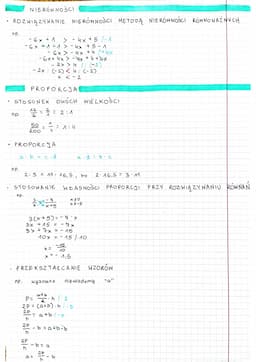 NIERÓWNOŚCI
• ROZWIĄZYWANIE NIERÓWNOŚCI METODĄ NIERÓWNOŚCI RÓWNOWAŻNYCH
np.
-6x + 1 > -4x + 5 /-1
-6x + 1 - 1 > -4x + 5 - 1
-6x > -4x + 4 /+4x
-6x + 4x > -4x + 4 + 4x
-2x > 4 /:(-2)
-2x : (-2) < 4 : (-2)
x < -2
PROPORCJA
• STOSUNEK DWÓCH WIELKOŚCI
np
= 2 : 1
50/200 = 1/4 = 1 : 4
• PROPORCJA
a : b = c : d
a · d = b · c
np.
• STOSOWANIE WŁASNOŚCI PROPORCJI PRZY ROZWIĄZYWANIU RÓWNAŃ
np.
3(x+5) = -7 · x
3x + 15 = -7x
3x + 7x = -15
10x = -15 /:10
x = -15/10
x = -1,5
• PRZEKSZTAŁCANIE WZORÓW
np. wyznacz niewiadomą "a"
P = a+b/2 · h /·2
2P = (a+b) · h /:h
2P/h = a+b /-b
2P/h - b = a+b-b
2P/h - b = a
a = 2P/h - b